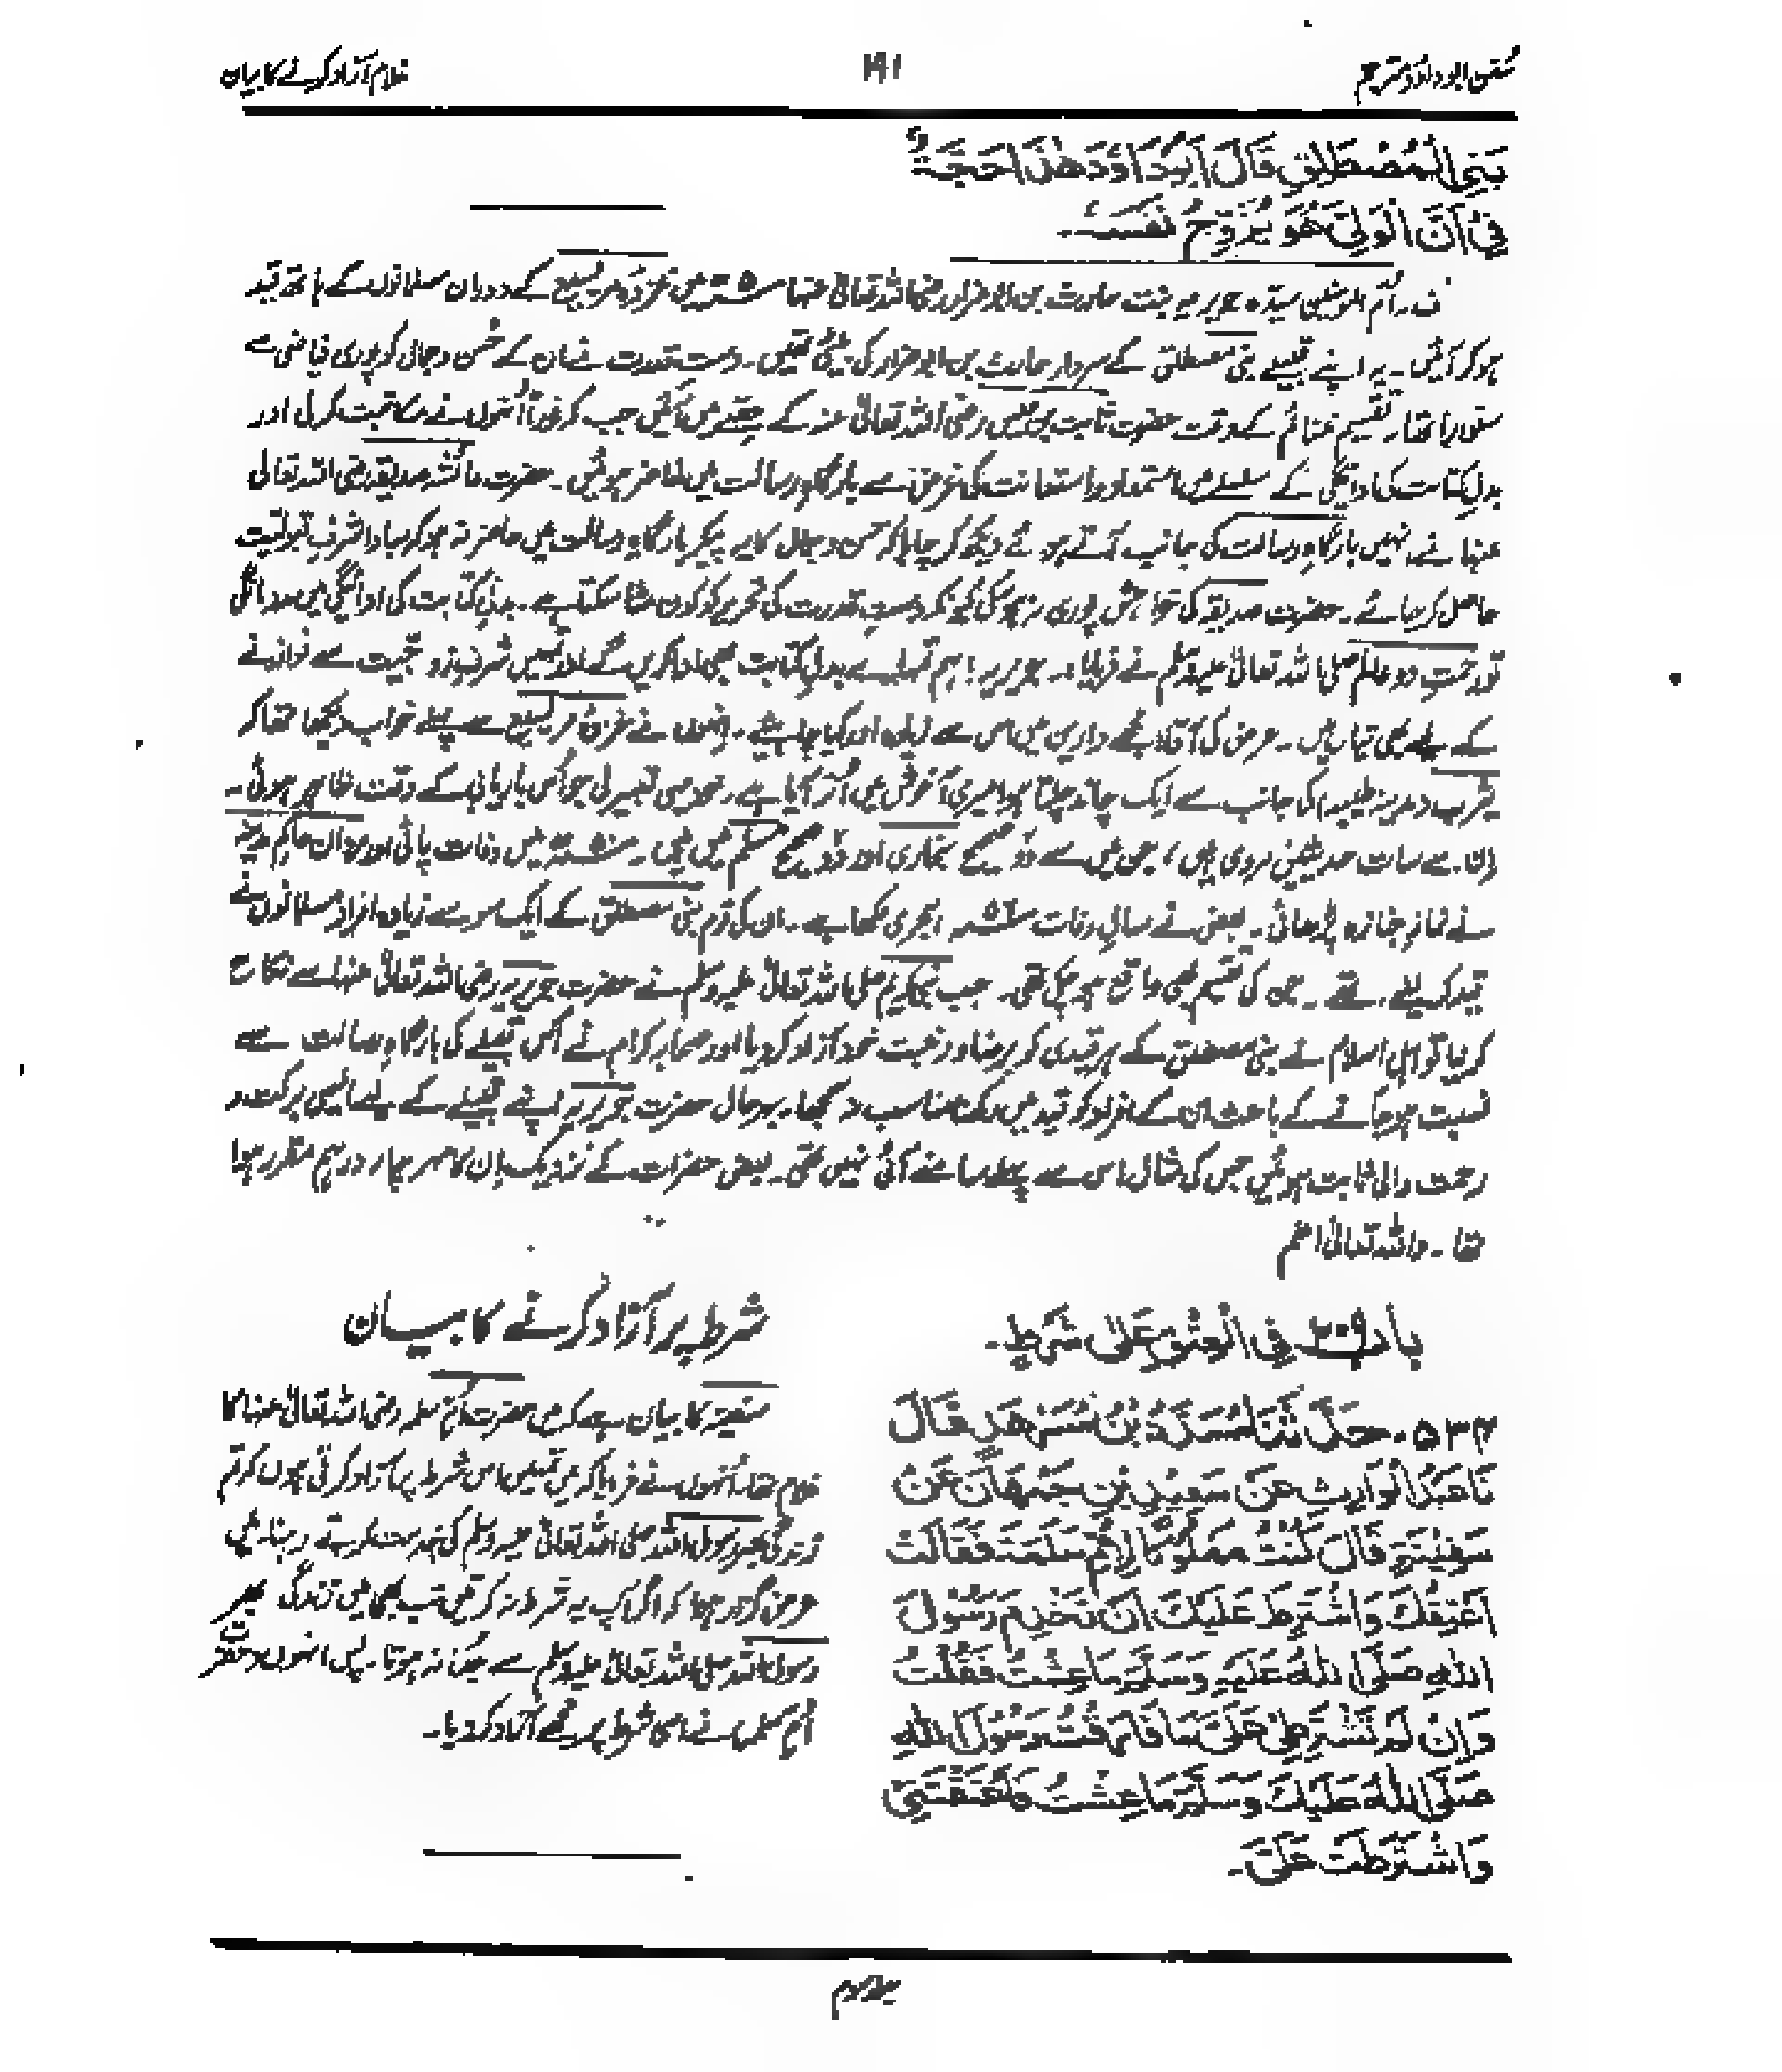 سنن ابوداؤد مترجم
۱۹۱
غلام آزاد کرنے کا بیان
بَنِی الْمُصْطَلِقِ قَالَ اَبُوْدَاوٗدَ هٰذَا حُجَّةٌ
فِیْ اَنَّ الْوَلِیَّ هُوَ یُزَوِّجُ نَفْسَهٗ۔
ف۔ اُم المومنین سیدہ جویریہ بنت حارث بن ابو ضرار رضی اللہ تعالیٰ عنہا میں غزوۂ مریسیع کے دوران مسلمانوں کے ہاتھ قید
ہو کر آئیں۔ یہ اپنے قبیلے بنی مصطلق کے سردار حارث بن ابو ضرار کی بیٹی تھیں۔ دست قدرت نے ان کے حُسن و جمال کو پوری فیاضی سے
سنوارا تھا۔ تقسیم غنائم کے وقت حضرت ثابت بن قیس رضی اللہ تعالیٰ عنہ کے حِصّے میں آئیں جب کہ فوراً اُنھوں نے مکاتبت کرلی اور
بدلِ کتابت کی ادائیگی کے سلسلے میں استمداد و استعانت کی غرض سے بارگاہِ رسالت میں حاضر ہوئیں۔ حضرت عائشہ صدیقہ رضی اللہ تعالیٰ
عنہا نے انہیں بارگاہِ رسالت کی جانب آتے ہوئے دیکھ کر چاہا کہ حسن و جمال کا یہ پیکر بارگاہِ رسالت میں حاضر نہ ہو کہ مبادا شرفِ قبولیت
حاصل کر جائے۔ حضرت صدیقہ کی خواہش پوری نہ ہوسکی کیونکہ دستِ قدرت کی تحریر کو کون مٹا سکتا ہے۔ بدلِ کتابت کی ادائیگی میں مدد مانگی
تو رحمتِ دو عالم صلی اللہ تعالیٰ علیہ وسلم نے فرمایا:۔ جویریہ! ہم تمہارے بدلِ کتابت بھی ادا کریں گے اور تمہیں شرفِ زوجیت سے نوازنے
کے لیے بھی تیار ہیں۔ عرض کی آقا! مجھے دارین میں اس سے زیادہ اور کیا چاہیئے۔ انھوں نے غزوۂ مریسیع سے پہلے خواب دیکھا تھا کہ
یثرب (مدینہ طیبہ) کی جانب سے ایک چاند چلتا ہوا میری آغوش میں اُتر آیا ہے۔ خود ہی تعبیر لی جو اُس باریابی کے وقت ظاہر ہوئی۔
ان سے سات حدیثیں مروی ہیں، جن میں سے دو صحیح بخاری اور دو صحیح مسلم میں ہیں۔ میں وفات پائی اور مروان حاکم مدینہ
نے نمازِ جنازہ پڑھائی۔ بعض نے سالِ وفات ہجری لکھا ہے۔ ان کی قوم بنی مصطلق کے ایک سو سے زیادہ افراد مسلمانوں نے
قید کر لیئے تھے۔ جن کی تقسیم بھی واقع ہو چکی تھی۔ جب نبی کریم صلی اللہ تعالیٰ علیہ وسلم نے حضرت جویریہ رضی اللہ تعالیٰ عنہا سے نکاح
کر لیا تو اہل اسلام نے بنی مصطلق کے ہر قیدی کو برضا و رغبت خود آزاد کر دیا اور صحابہ کرام نے اُس قبیلے کی بارگاہِ رسالت سے
نسبت ہو جانے کے باعث ان کے افراد کو قید میں رکھنا مناسب نہ سمجھا۔ بہرحال حضرت جویریہ اپنے قبیلے کے لیے ایسی برکت و
رحمت والی ثابت ہوئیں جس کی مثال اس سے پہلے سامنے آئی نہیں تھی۔ بعض حضرات کے نزدیک ان کا مہر چار درہم مقرر ہوا
تھا۔ واللہ تعالیٰ اعلم
بَاب۲۰۹ فِی الْعِتْقِ عَلٰی شَرْطٍ۔
۵۳۴۔ حَدَّثَنَا مُسَدَّدُ بْنُ مُسَرْهَدٍ قَالَ
نَا عَبْدُ الْوَارِثِ عَنْ سَعِیْدِ بْنِ جُمْهَانَ عَنْ
سَفِیْنَةَ قَالَ کُنْتُ مَمْلُوْکًا لِاُمِّ سَلَمَةَ فَقَالَتْ
اُعْتِقُکَ وَاَشْتَرِطُ عَلَیْکَ اَنْ تَخْدِمَ رَسُوْلَ
اللّٰهِ صَلَّی اللّٰهُ عَلَیْهِ وَسَلَّمَ مَا عِشْتَ فَقُلْتُ
وَاِنْ لَمْ تَشْتَرِطِیْ عَلَیَّ مَا فَارَقْتُ رَسُوْلَ اللّٰهِ
صَلَّی اللّٰهُ عَلَیْکَ وَسَلَّمَ مَا عِشْتُ فَاَعْتَقَتْنِیْ
وَاشْتَرَطَتْ عَلَیَّ۔
شرط پر آزاد کرنے کا بیان
سفینہ کا بیان ہے کہ میں حضرت اُمِّ سلمہ رضی اللہ تعالیٰ عنہا کا
غلام تھا۔ اُنہوں نے فرمایا کہ میں تمہیں اس شرط پر آزاد کرتی ہوں کہ تم
زندگی بھر رسول اللہ صلی اللہ تعالیٰ علیہ وسلم کی خدمت کرتے رہنا۔ میں
عرض گزار ہوا کہ اگر آپ یہ شرط نہ کرتیں تب بھی میں زندگی بھر
رسول اللہ صلی اللہ تعالیٰ علیہ وسلم سے جدا نہ ہوتا۔ پس انہوں (حضرت
اُم سلمہ) نے اسی شرط پر مجھے آزاد کر دیا۔
جلد سوم